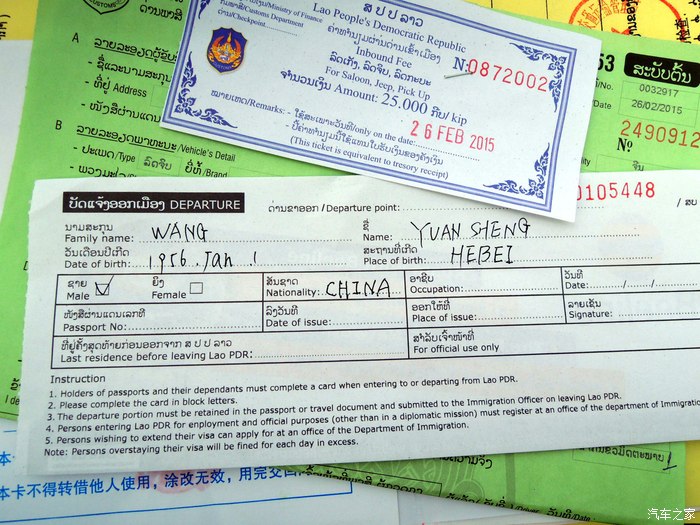 ດ່ານພາສີ
ສ ປ ປ ລາວ
Ministry of Finance
Lao People's Democratic Republic
Customs Department
ດ່ານ/Checkpoint
ຄ່າທຳນຽມຜ່ານດ່ານເຂົ້າເມືອງ
Inbound Fee
ລົດເກັ່ງ, ລົດຈິບ, ລົດກະບະ
For Saloon, Jeep, Pick Up
ຈຳນວນເງິນ Amount: 25.000 ກີບ/ kip
No: 0872002
ໝາຍເຫດ/Remarks: - ໃຊ້ສະເພາະວັນທີ/only on the date:
26 FEB 2015
- ປີ້ຄ່າທຳນຽມນີ້ໃຊ້ແທນໃບຮັບເງິນຂອງຄັງເງິນ
(This ticket is equivalent to tresory receipt)
A. ລາຍລະອຽດຜູ້ຂັບ
- ຊື່ແລະນາມສະກຸນ
- ທີ່ຢູ່ Address
- ໜັງສືຜ່ານແດນ
B ລາຍລະອຽດພາຫະນະ /Vehicle's Detail
- ປະເພດ/Type ລົດຈິບ ຍີ່ຫໍ້/Brand
53
ສະບັບຕົ້ນ
0032917
26/02/2015
2490912
№
0105448
ບັດແຈ້ງອອກເມືອງ DEPARTURE
ດ່ານຂາອອກ / Departure point:
ນາມສະກຸນ
Family name: WANG
ຊື່
Name: YUAN SHENG
ວັນເດືອນປີເກີດ
Date of birth: 1956. Jan. 1
ສະຖານທີ່ເກີດ
Place of birth: HEBEI
ຊາຍ
Male
ຍິງ
Female
ສັນຊາດ
Nationality: CHINA
ອາຊີບ
Occupation:
ວັນທີ
Date:
ໜັງສືຜ່ານແດນເລກທີ
Passport No:
ລົງວັນທີ
Date of issue:
ອອກໃຫ້ທີ່
Place of issue:
ລາຍເຊັນ
Signature:
ທີ່ຢູ່ຄັ້ງສຸດທ້າຍກ່ອນອອກຈາກ ສ ປ ປ ລາວ
Last residence before leaving Lao PDR:
ສຳລັບເຈົ້າໜ້າທີ່
For official use only
Instruction
1. Holders of passports and their dependants must complete a card when entering to or departing from Lao PDR.
2. Please complete the card in block letters.
3. The departure portion must be retained in the passport or travel document and submitted to the Immigration Officer on leaving Lao PDR.
4. Persons entering Lao PDR for enployment and official purposes (other than in a diplomatic mission) must register at an office of the department of Immigration.
5. Persons wishing to extend their visa can apply for at an office of the Department of Immigration.
Note: Persons overstaying their visa will be fined for each day in excess.
本卡不得转借他人使用，涂改无效，用完交回
汽车之家